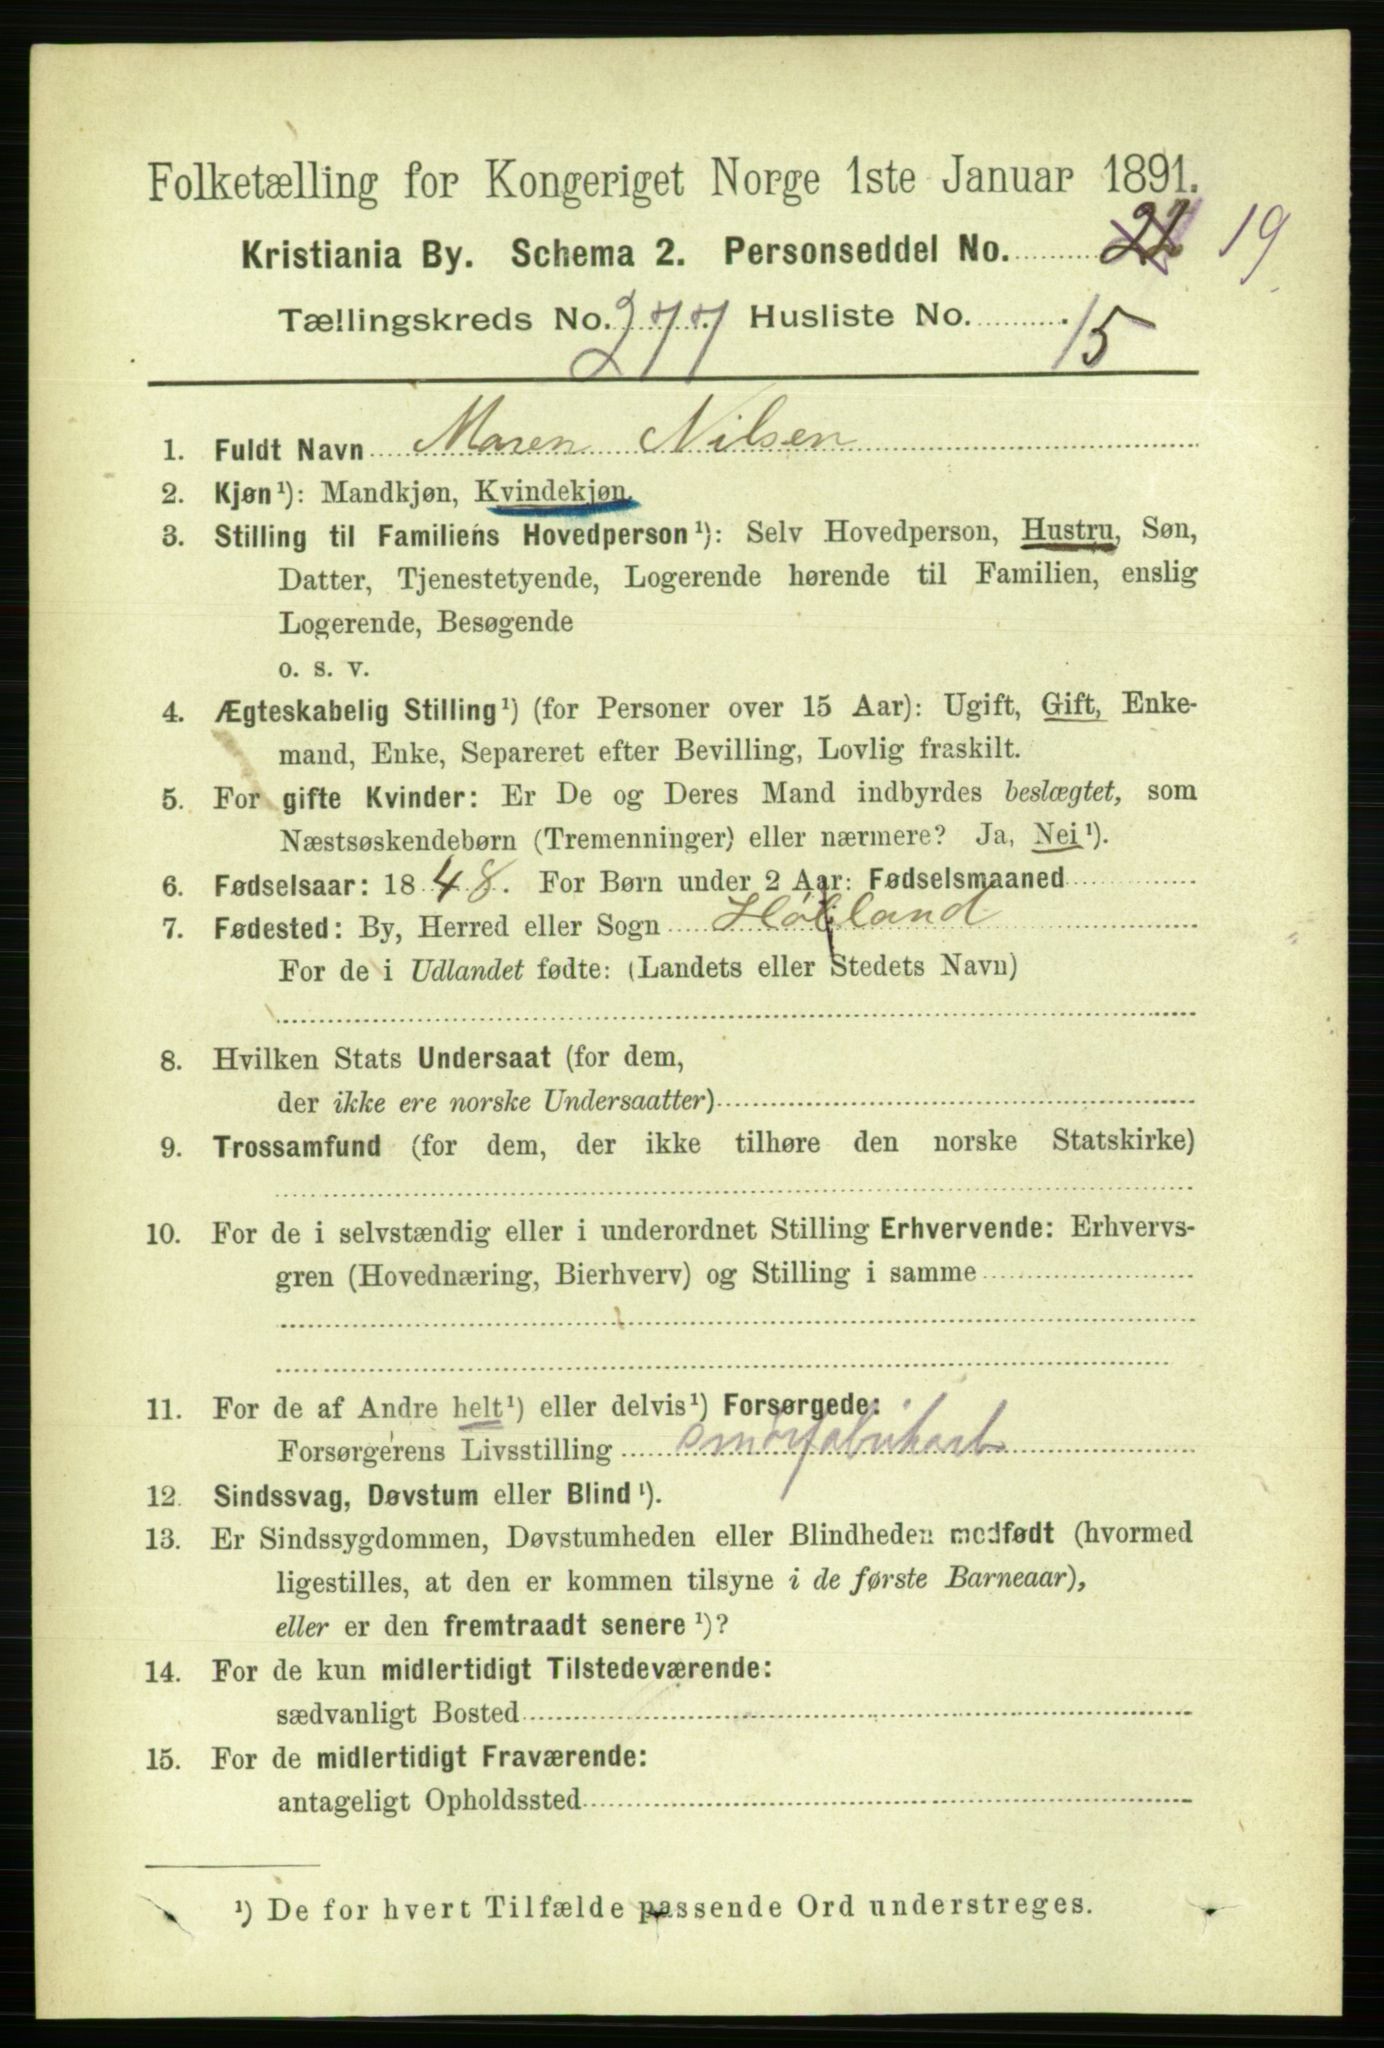 Folketælling for Kongeriget Norge 1ste Januar 1891.
Kristiania By. Schema 2. Personseddel No. 22 19
Tællingskreds No. 277 Husliste No. 15
1. Fuldt Navn Maren Nilsen
2. Kjøn¹): Mandkjøn, Kvindekjøn.
3. Stilling til Familiens Hovedperson¹): Selv Hovedperson, Hustru, Søn,
Datter, Tjenestetyende, Logerende hørende til Familien, enslig
Logerende, Besøgende
o. s. v.
4. Ægteskabelig Stilling¹) (for Personer over 15 Aar): Ugift, Gift, Enke-
mand, Enke, Separeret efter Bevilling, Lovlig fraskilt.
5. For gifte Kvinder: Er De og Deres Mand indbyrdes beslægtet, som
Næstsøskendebørn (Tremenninger) eller nærmere? Ja, Nei¹).
6. Fødselsaar: 1848. For Børn under 2 Aar: Fødselsmaaned
7. Fødested: By, Herred eller Sogn Høland
For de i Udlandet fødte: (Landets eller Stedets Navn)
8. Hvilken Stats Undersaat (for dem,
der ikke ere norske Undersaatter)
9. Trossamfund (for dem, der ikke tilhøre den norske Statskirke)
10. For de i selvstændig eller i underordnet Stilling Erhvervende: Erhvervs-
gren (Hovednæring, Bierhverv) og Stilling i samme
11. For de af Andre helt¹) eller delvis¹) Forsørgede:
Forsørgerens Livsstilling smørfabrikarb
12. Sindssvag, Døvstum eller Blind¹).
13. Er Sindssygdommen, Døvstumheden eller Blindheden medfødt (hvormed
ligestilles, at den er kommen tilsyne i de første Barneaar),
eller er den fremtraadt senere¹)?
14. For de kun midlertidigt Tilstedeværende:
sædvanligt Bosted
15. For de midlertidigt Fraværende:
antageligt Opholdssted
¹) De for hvert Tilfælde passende Ord understreges.